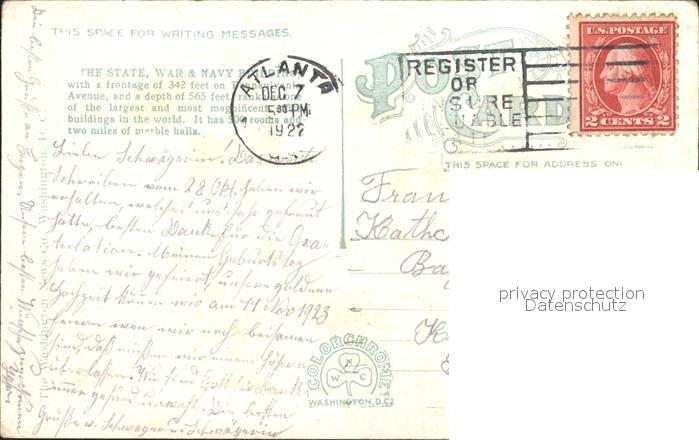 THIS SPACE FOR WRITING MESSAGES.
THE STATE, WAR & NAVY
with a frontage of 342 feet on
Avenue, and a depth of 565 feet
of the largest and most
buildings in the world. It has 500 rooms and
two miles of marble halls.
POST
CARD
ATLANTA
DEC 7
5 30 PM
1922
REGISTER
OR
U.S. POSTAGE
2 CENTS 2
THIS SPACE FOR ADDRESS ONL
Lieben Schwägerin! Das
Schreiben vom 28 Okt. haben wir
erhalten, welches uns sehr gefreut
hatte, besten Dank für die Gra-
tulation. Meinen Geburtstag
haben wir gefeiert, unsere goldene
Hochzeit können wir am 11 Nov 1923
feiern wen wir noch beisamen
sind, das müßen wir einem Höhern
überlassen. Wir sind Gott sei Dank
immer gesund u. wohl. Die besten
Grüße v. Schwager u. Schwägerin
Die besten Grüße an
Frau
Kathe
Ba
COLORCHROME
WNC
WASHINGTON, D.C.
privacy protection
Datenschutz